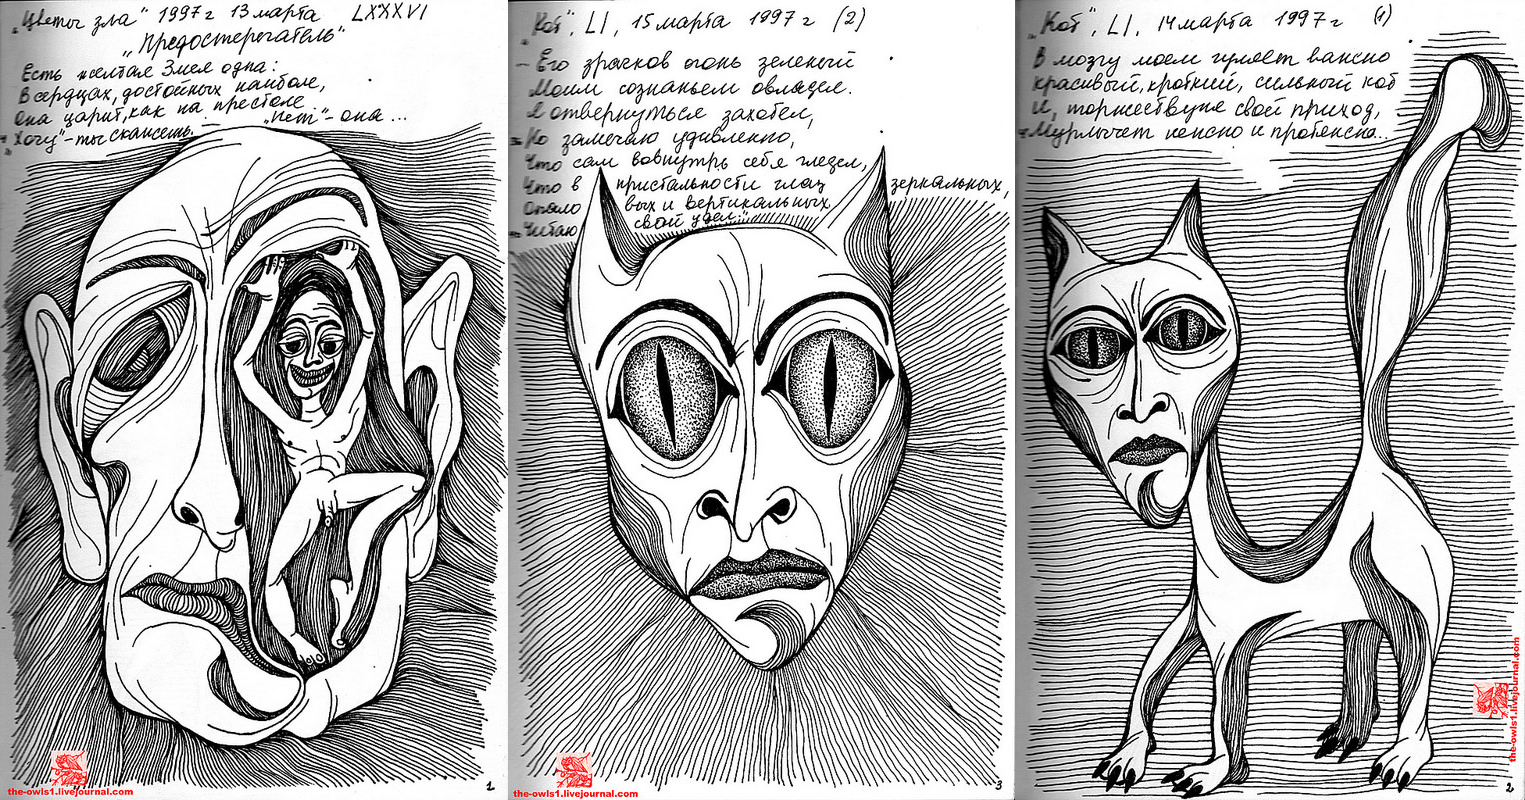 "Цветы зла" 1997г 13 марта LXXXVI
"Предостерегатель"
Есть желтая Змея одна:
В сердцах, достойных наиболе,
Она царит, как на престоле
"Хочу" - ты скажешь. - "нет" - она...
1
the-owls1.livejournal.com
"Кот", LI, 15 марта 1997г (2)
- Его зрачков огонь зеленый
Моим сознаньем овладел.
Я отвернуться захотел,
Но замечаю удивленно,
Что сам вовнутрь себя глядел,
Что в пристальности глаз зеркальных,
вых и вертикальных,
Читаю свой удел..."
3
the-owls1.livejournal.com
"Кот", LI, 14 марта 1997г (1)
В мозгу моем гуляет важно
красивый, кроткий, сильный кот
И, торжествуя свой приход,
Мурлычет нежно и протяжно...
2
the-owls1.livejournal.com